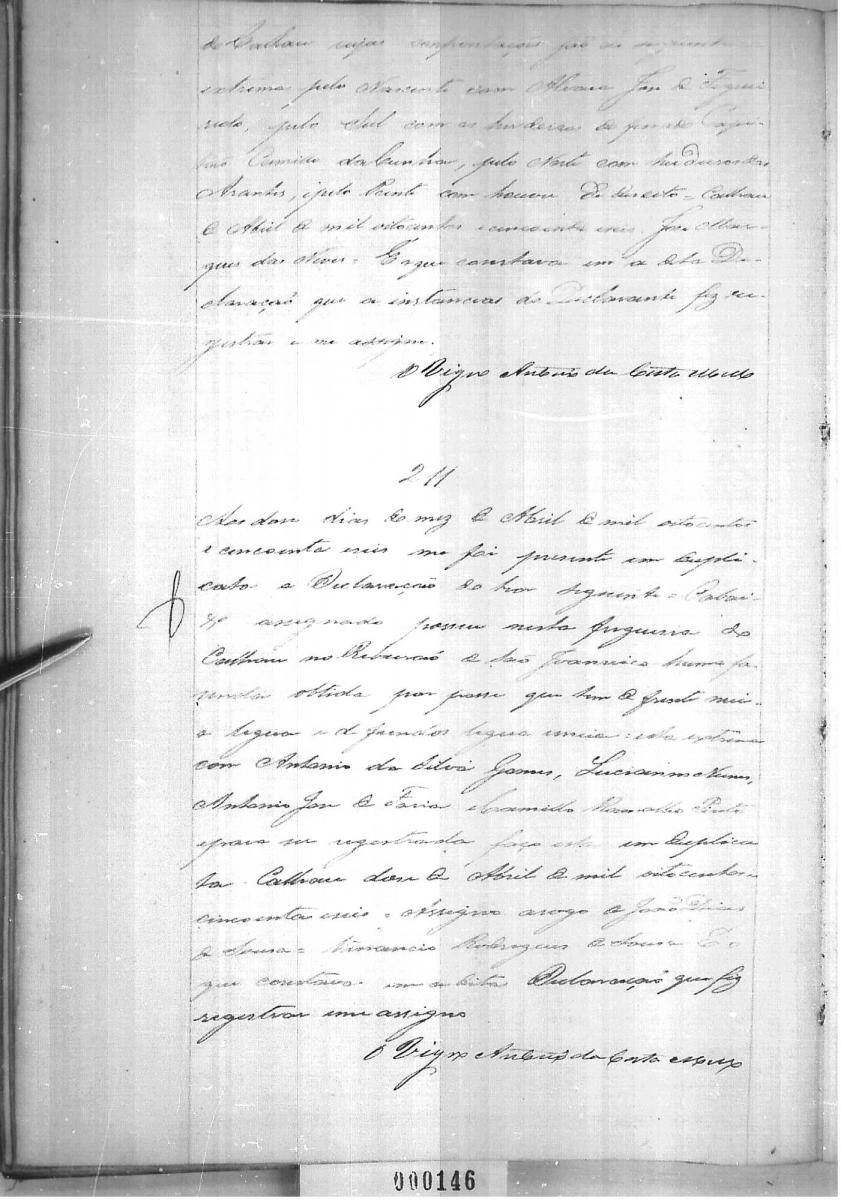 do Cathau cujas confrontações são as seguintes
extrema pelo Nascente com Alvaro José de Figuei-
redo, pelo Sul com os herdeiros do finado Capi-
tão Camido da Cunha, pelo Norte com herdeiros das
Arantes, e pelo Poente com houver de direito = Cathau
de Abril de mil oitocentos e cincoenta e seis. José Mar-
ques das Neves = E o que constava em a dita De-
claração que a instancias do Declarante fiz re-
gistrar e me assigno.
O Vigro Antonio da Costa
211
Aos dose dias do mez de Abril de mil oitocentos
e cincoenta e seis me foi presente em dupli-
cata a Declaração do teor seguinte = O abai-
xo assignado possue nesta freguesia do
Cathau no Ribeirão de São huma fa-
senda obtida por posse que tem de frente mei-
a legua e de fundos legua e meia: esta extrema
com Antonio da Silva Gomes, Luciano Nunes,
Antonio José de Faria e Camillo Ramalho Pinto
e para ser registrada faço esta em duplica
ta. Cathau dose de Abril de mil oitocentos
cincoenta e seis = Assigno arogo de João Dias
de Sousa = Venancio Rodrigues de Sousa E o
que constava em a dita Declaração que fiz
registrar e me assigno
O Vigro Antonio da Costa
000146